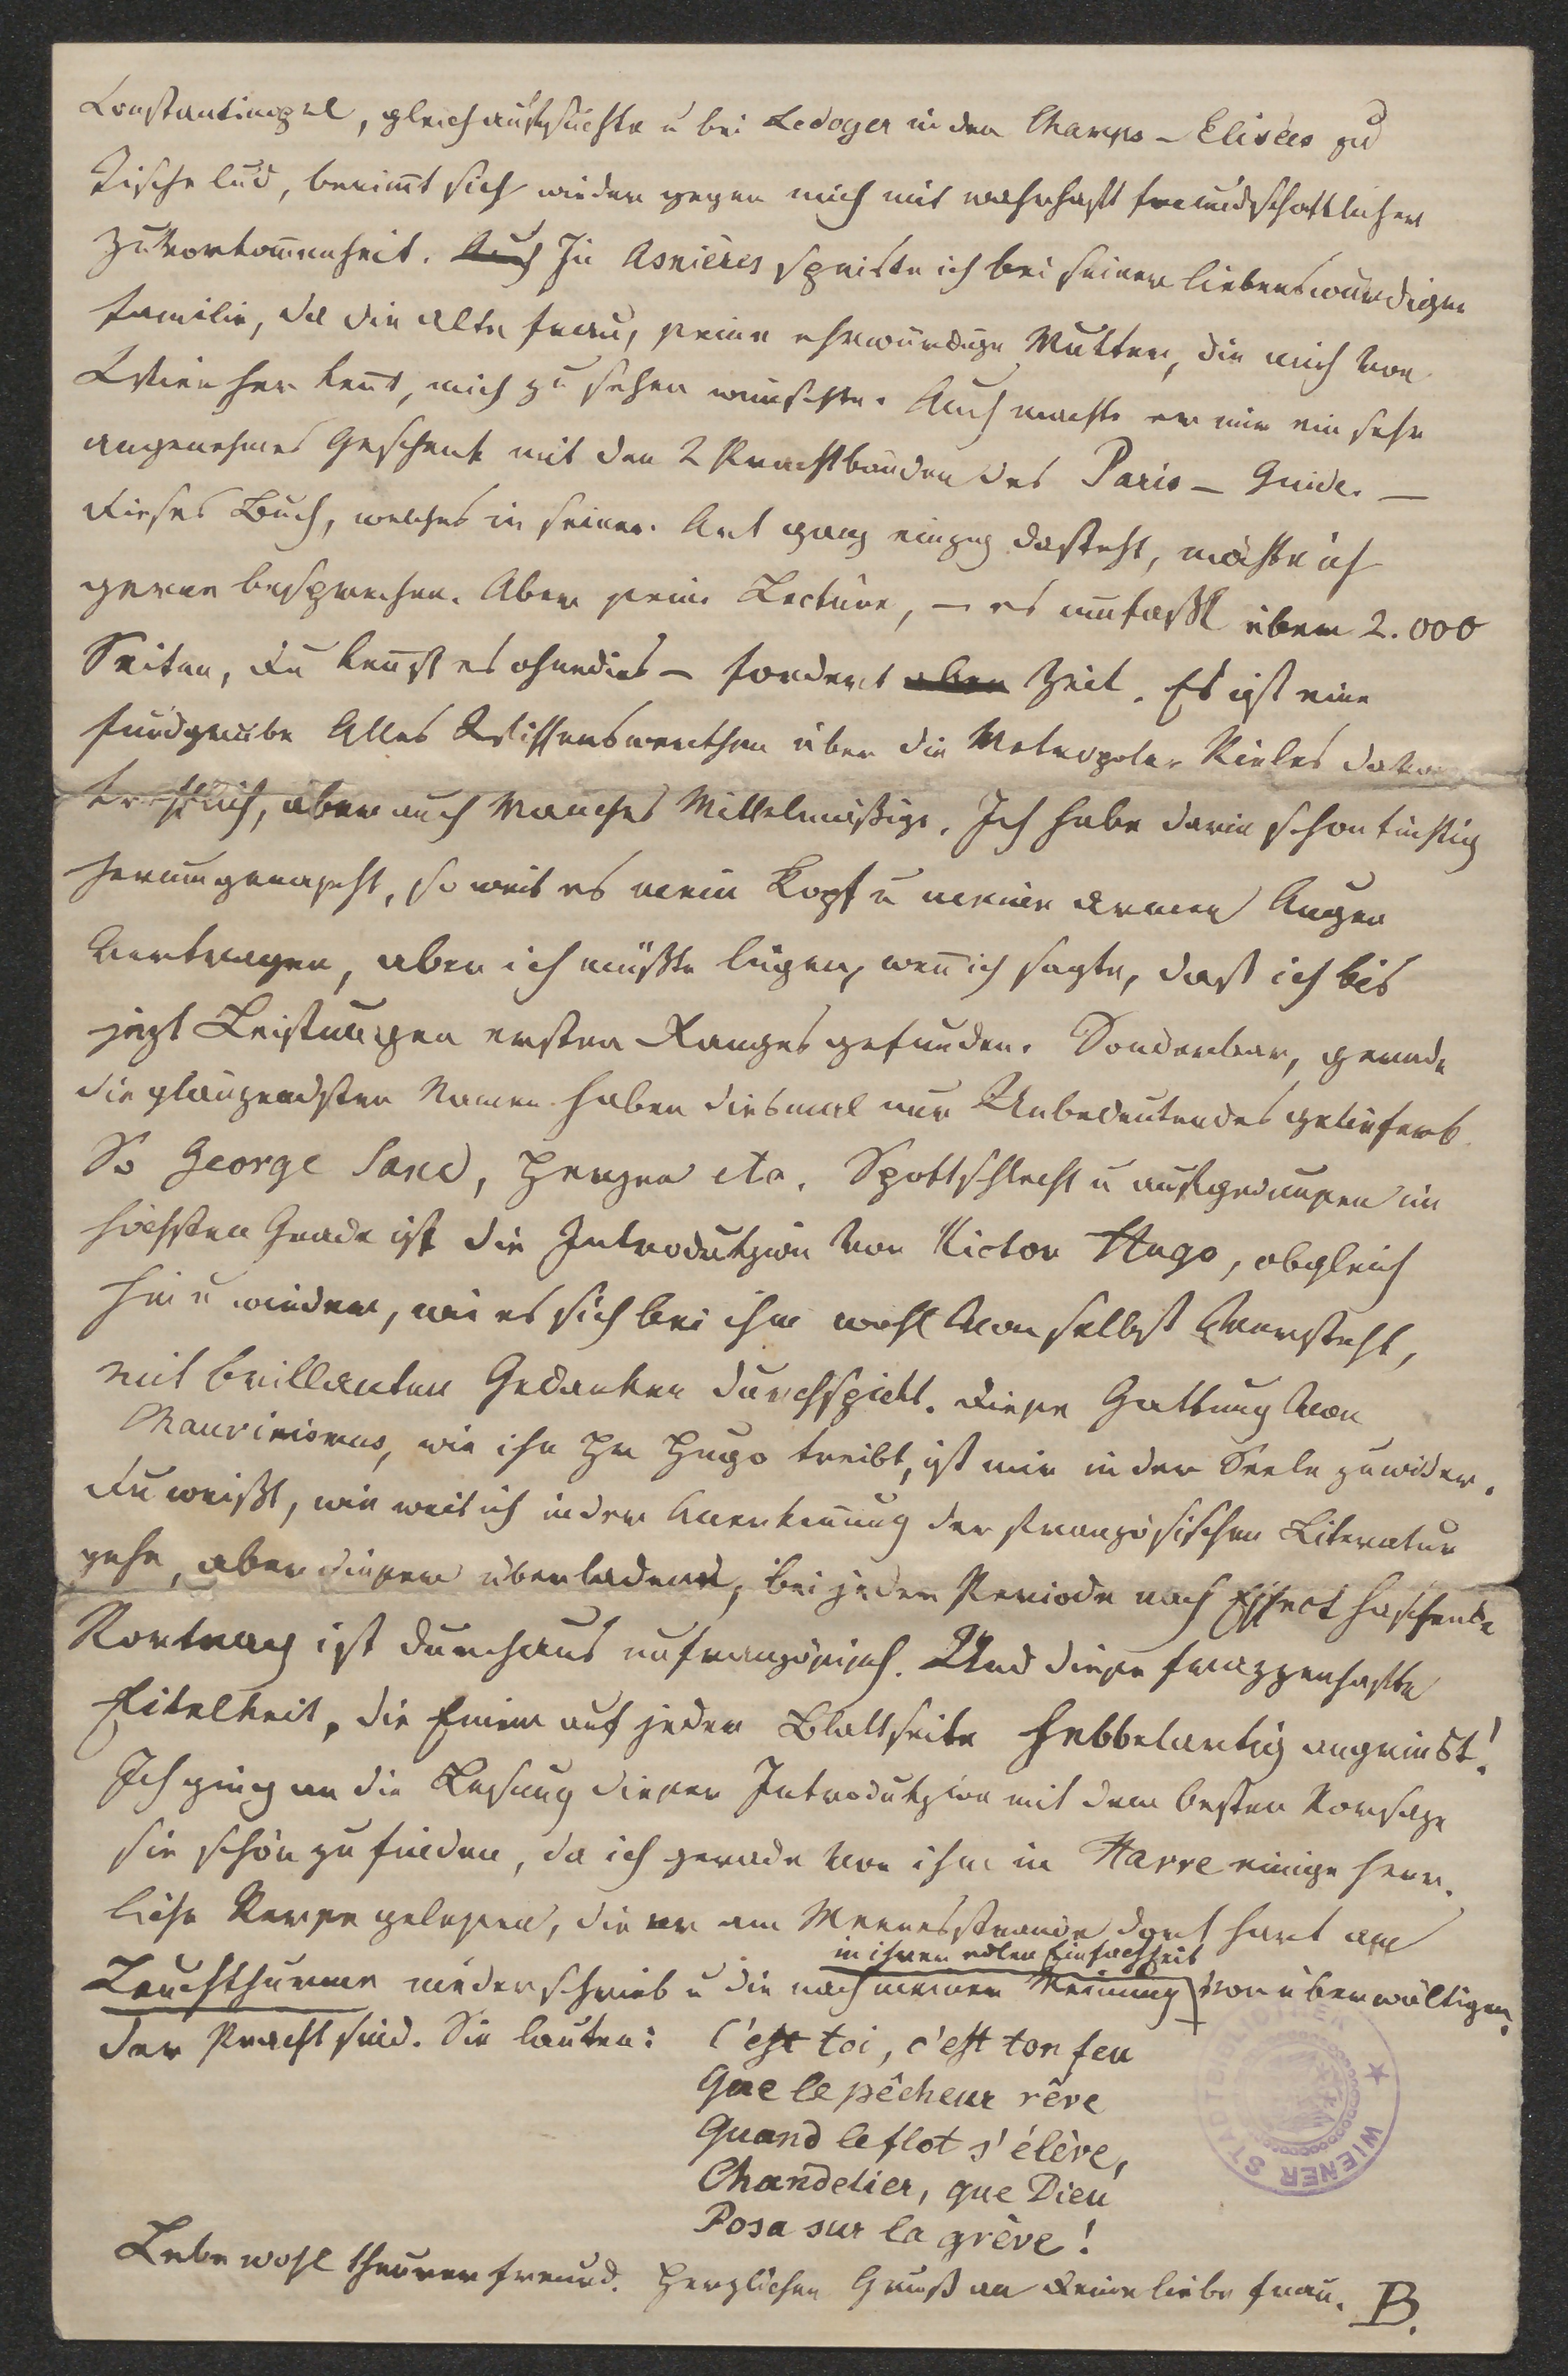 Constantinopel, gleich aufsuchte u bei Ledoyer in den Champs-Elisées zu
Tische lud, benimt sich wieder gegen mich mit wahrhaft freundschaftlicher
Zuvorkommenheit. Auch In Asnières speiste ich bei seiner liebenswürdigen
Familie, da die alte Frau, seine ehrwürdige Mutter, die mich von
Wien her kent, mich zu sehen wünschte. Auch machte er mir ein sehr
angenehmes Geschenk mit den 2 Prachtbänden des Paris-Guide. —
Dieses Buch, welches in seiner Art ganz einzig dasteht, möchte ich
gerne besprechen. Aber seine Lecture, — es umfaßt über 2.000
Seiten, Du kenst es ohnedies — fordert aber Zeit. Es ist eine
Fundgrube Alles Wissenswerthen über die Metropole. Vieles davon
trefflich, aber auch Manches Mittelmäßige. Ich habe darin schon tüchtig
herumgenascht, so weit es mein Kopf u meine armen Augen
vertragen, aber ich müßte lügen, wen ich sagte, daß ich bis
jezt Leistungen ersten Ranges gefunden. Sonderbar, gerade
die glänzendsten Namen haben diesmal nur Unbedeutendes geliefert
So George Sand, Herzen etc. Spottschlecht u aufgedunsen im
höchsten Grade ist die Introdukzion von Victor Hugo, obgleich
hin u wieder, wie es sich bei ihm wohl von selbst versteht,
mit brillanten Gedanken durchspickt. Diese Gattung von
Chauvinismus, wie ihn Hr Hugo treibt, ist mir in der Seele zuwider.
Du weißt, wie weit ich in der Anerkennung der französischen Literatur
gehe, aber dieser überladene, bei jeder Periode nach Effect haschende
Vortrag ist durchaus unfranzösisch. Und diese frazzenhafte
Eitelkeit, die Einem auf jeder Blattseite hebbelartig angrinst!
Ich ging an die Lesung dieser Introdukzion mit dem besten Vorsaze
sie schön zu finden, da ich gerade von ihm in Havre einige herr-
liche Verse gelesen, die er am Meeresstrande dort hart am
in ihrer edlen Einfachheit
Leuchthurme niederschrieb u die nach meiner Meinung von überwältigen-
der Pracht sind. Sie lauten: C'est toi, c'est ton feu
Que le pêcheur rêve
Quand le flot s'élève,
Chandelier, que Dieu
Posa sur la grève!
Lebe wohl theurer Freund. Herzlichen Gruß an Deine liebe Frau. B.
WIENER STADTBIBLIOTHEK